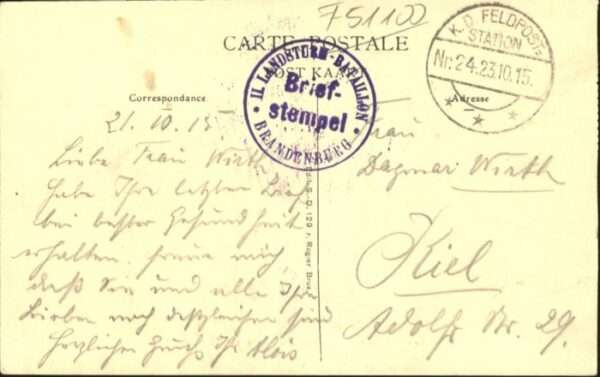 751102
CARTE POSTALE
POST KAART
Correspondance
Adresse
II. LANDSTURM-BATAILLON
Brief-
stempel
* BRANDENBURG *
K. D. FELDPOST=
STATION
Nr. 24. 23.10.15.
21.10.15.
Liebe Frau Wirth
habe Ihr letzten Brief
bei bester Gesundheit
erhalten. freue mich
daß Sie und alle Ihre
Lieben noch desgleichen sind
Herzlichen Ihr Alois
Frau
Dagmar Wirth
Kiel
Adolfs Str. 29.